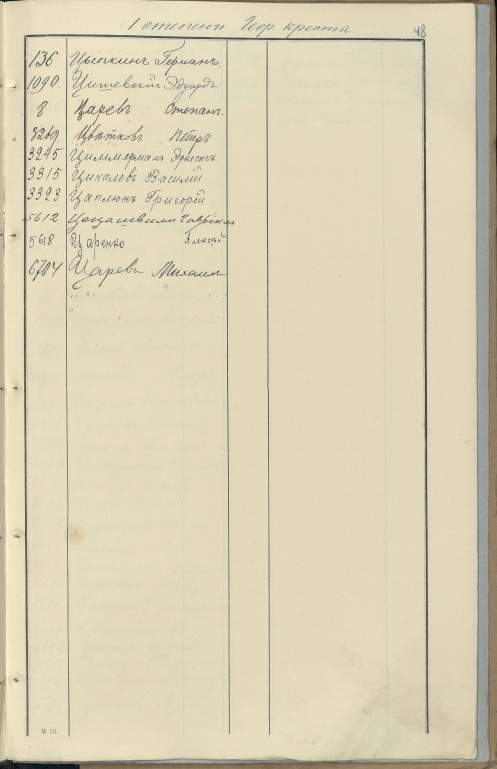 1 степени Геор. креста
48
136 Цыпкинъ Германъ
1090 Цишевскій Эдуардъ
8 Царевъ Степанъ
3209 Цвѣтковъ Петръ
3245 Циммерманъ Эрнестъ
3315 Цикаловъ Василій
3393 Цаплюкъ Григорій
5612 Цецашвили
5618 Царенко Алексѣй
6704 Царевъ Михаилъ
№ 13.